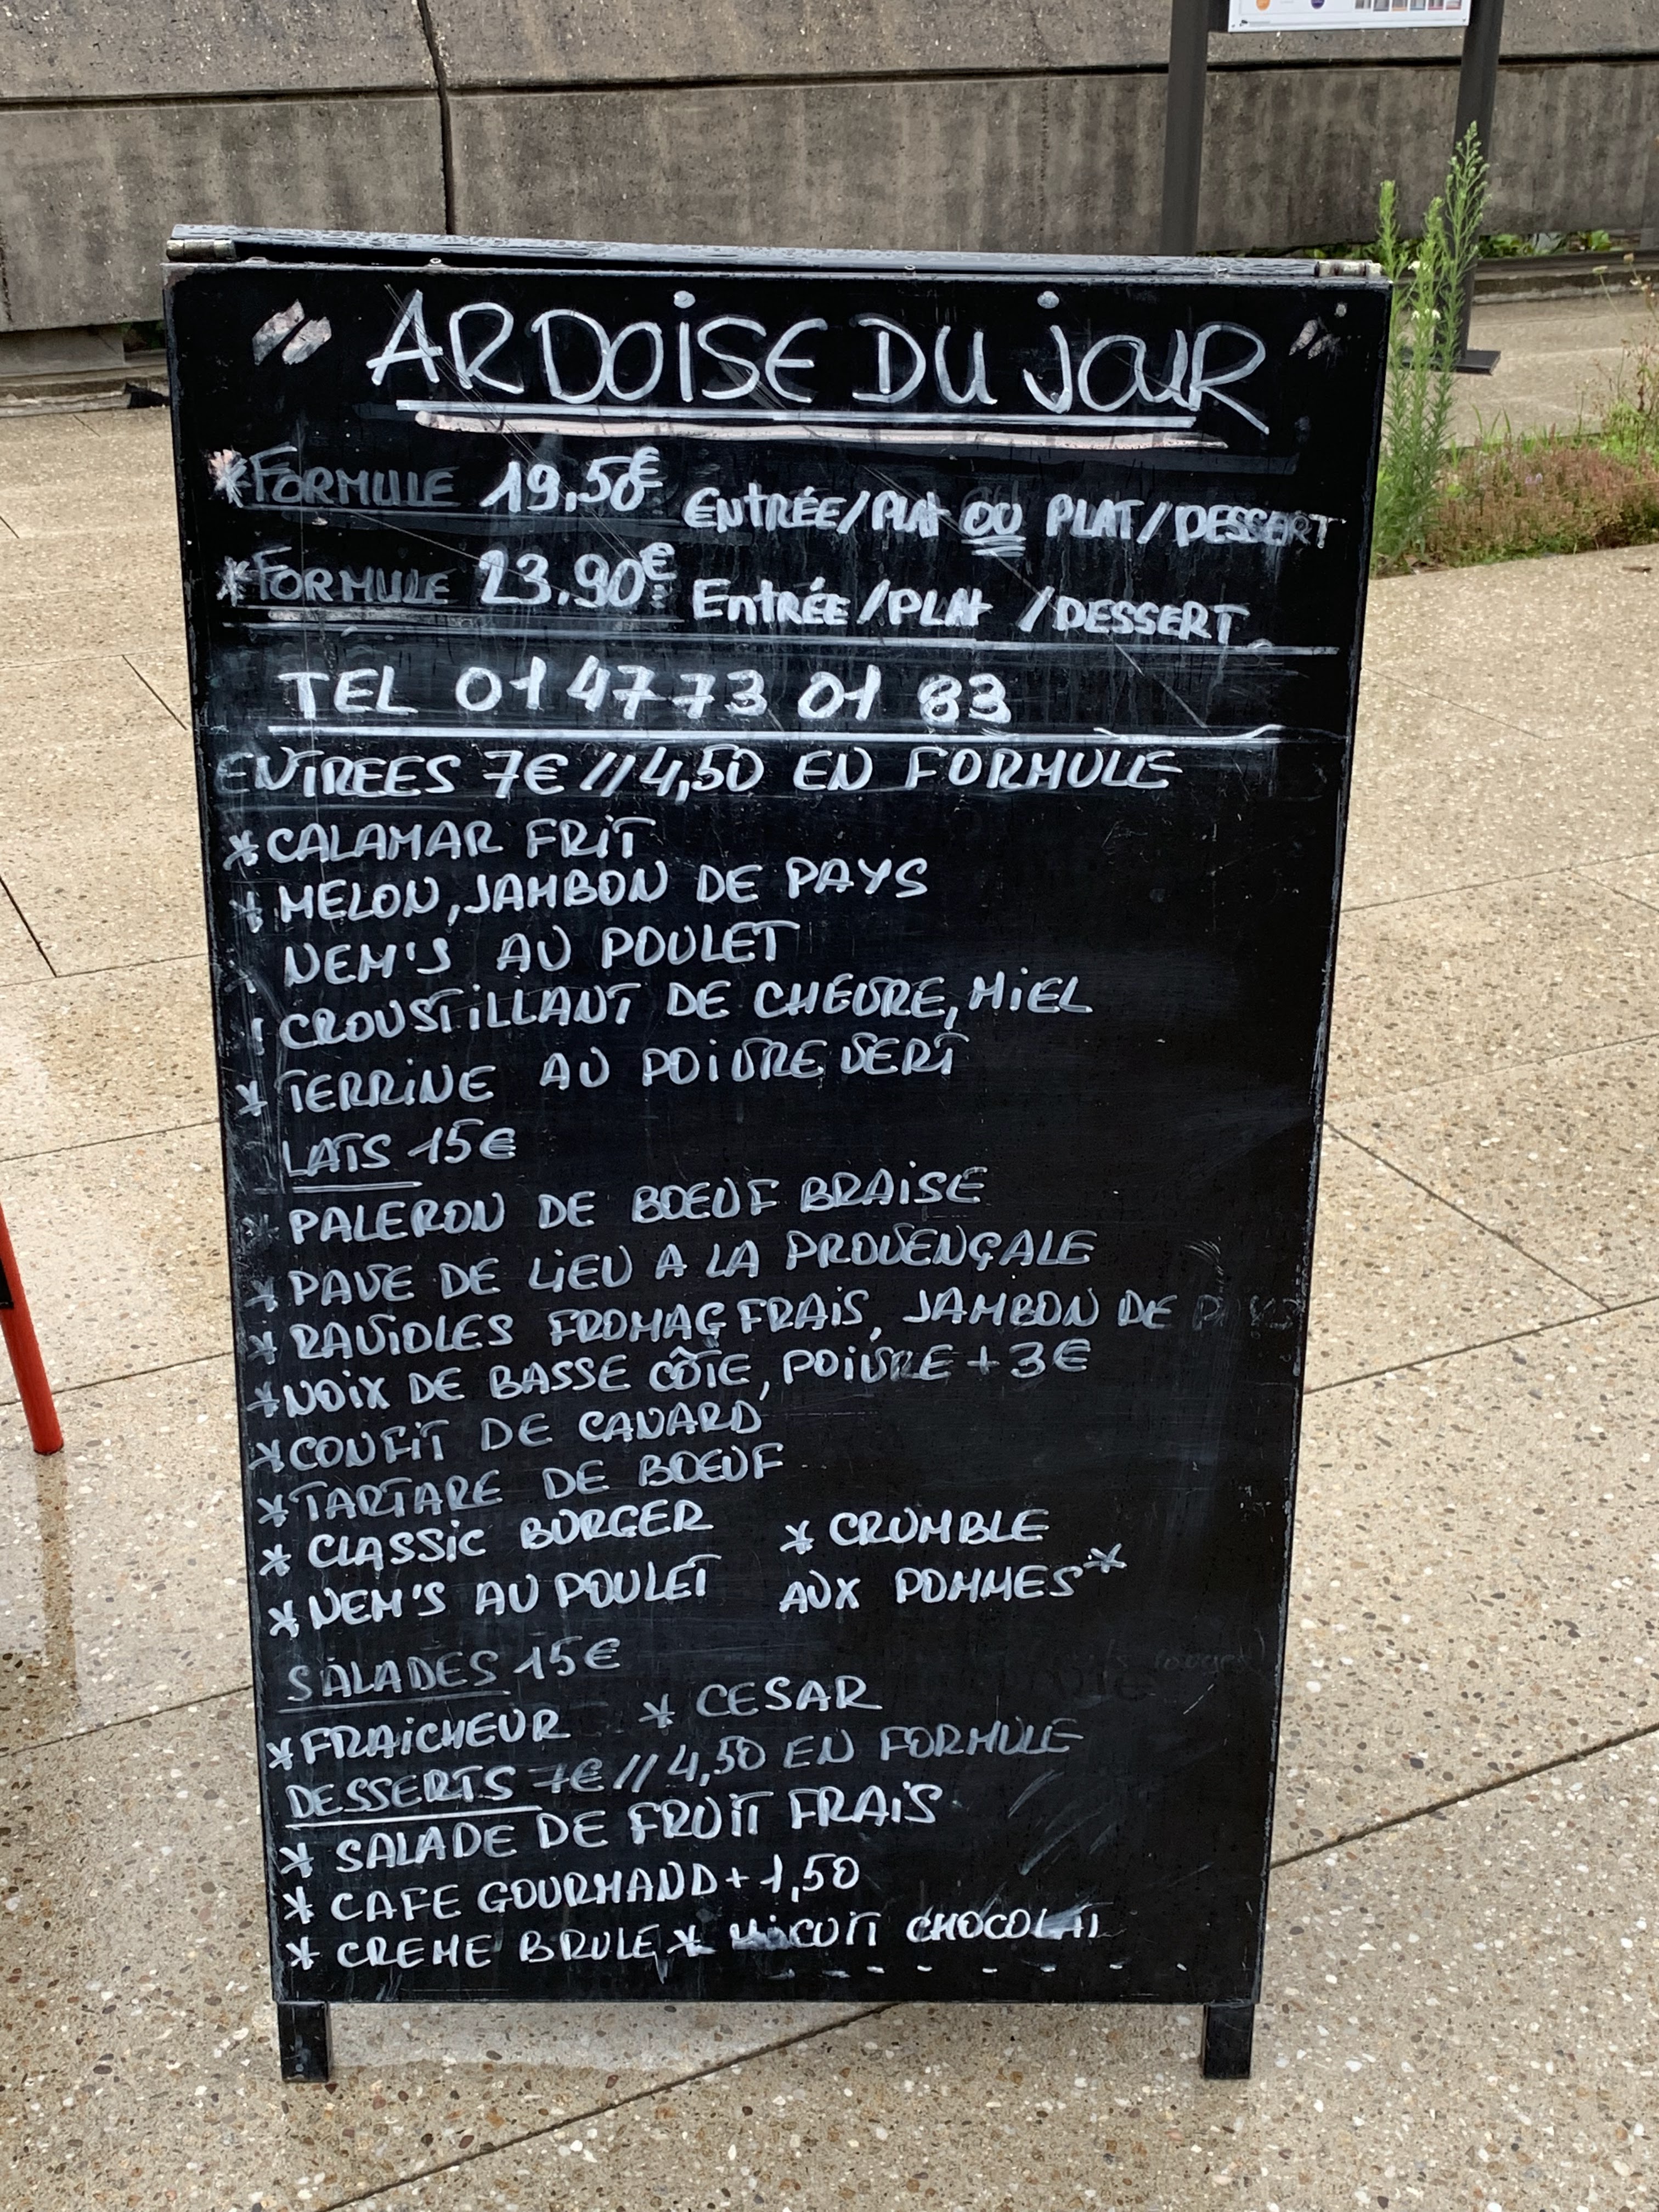 " ARDOISE DU JOUR "
*FORMULE 19,50€ ENTRÉE/PLAT OU PLAT/DESSERT
*FORMULE 23.90€ ENTRÉE/PLAT /DESSERT
TEL 01 47 73 01 83
ENTREES 7€//4,50 EN FORMULE
*CALAMAR FRIT
*MELON, JAMBON DE PAYS
NEM'S AU POULET
CROUSTILLANT DE CHEVRE, MIEL
* TERRINE AU POIVRE VERT
LATS 15€
* PALERON DE BOEUF BRAISE
*PAVE DE LIEU A LA PROVENÇALE
*RAVIOLES FROMAG FRAIS, JAMBON DE
*NOIX DE BASSE CÔTE, POIVRE + 3€
*CONFIT DE CANARD
*TARTARE DE BOEUF
* CLASSIC BURGER * CRUMBLE
*NEM'S AU POULET AUX POMMES*
SALADES 15€
*FRAICHEUR * CESAR
DESSERTS 7€//4,50 EN FORMULE
* SALADE DE FRUIT FRAIS
* CAFE GOURMAND+1,50
* CREME BRULE * CHOCOLAT